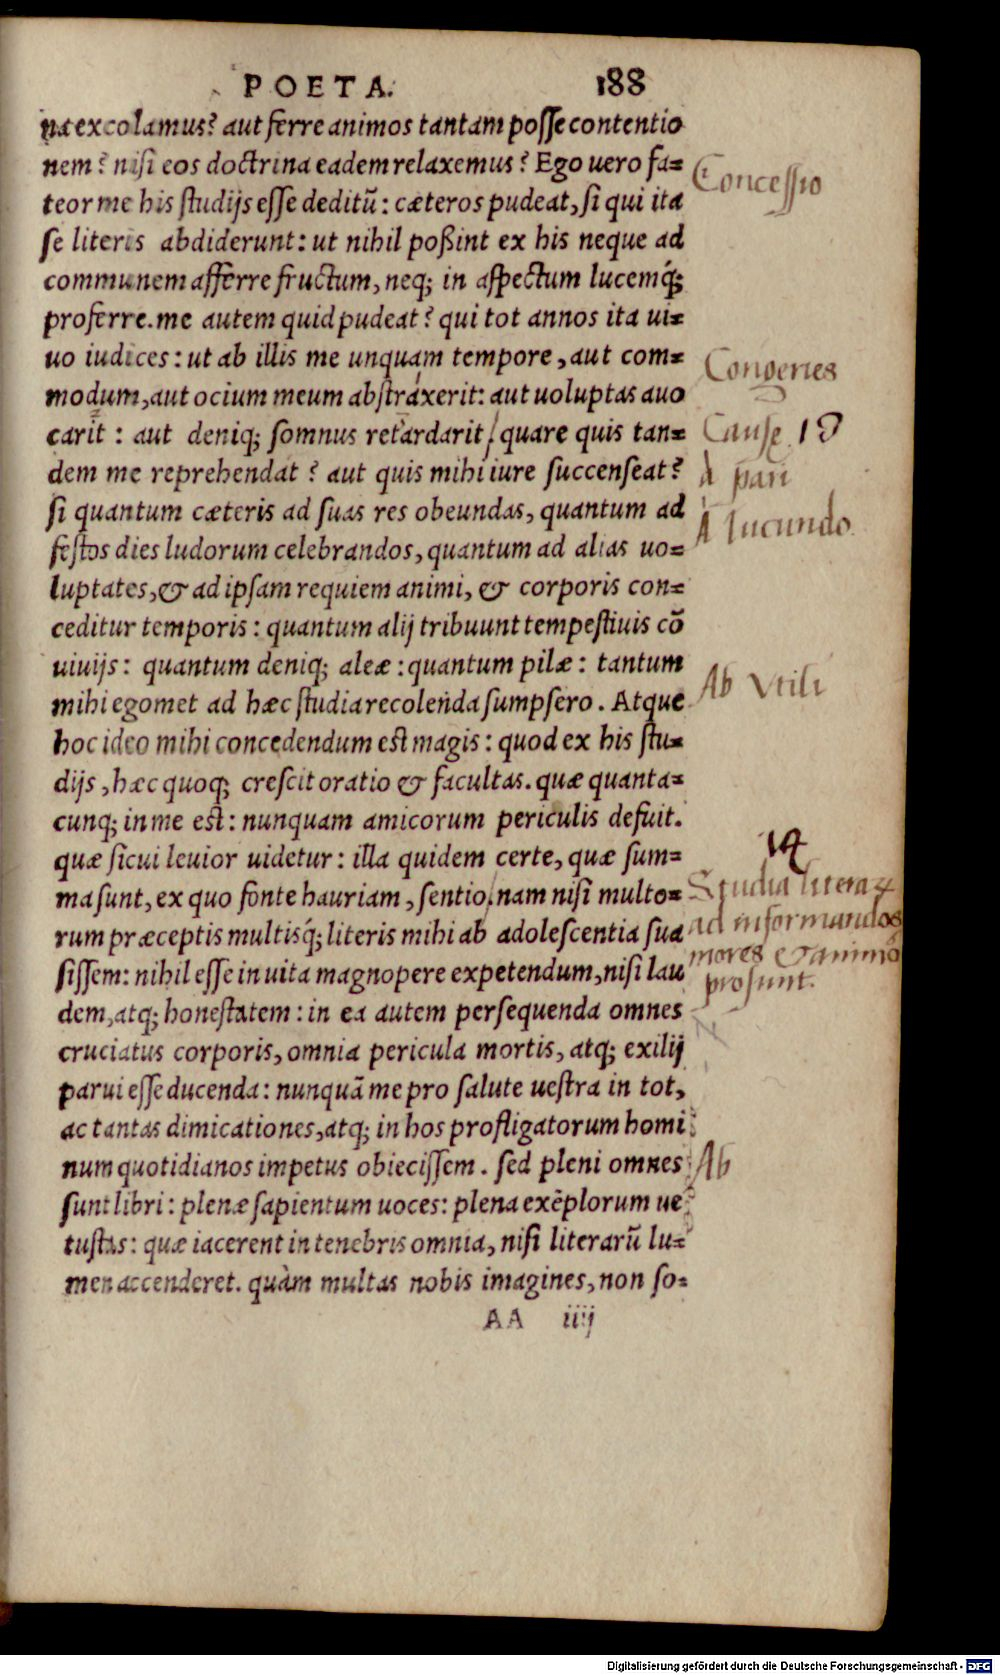 POETA. 188
na excolamus? aut ferre animos tantam posse contentio
nem? nisi eos doctrina eadem relaxemus? Ego uero fa=
teor me his studijs esse deditū: cæteros pudeat, si qui ita
se literis abdiderunt: ut nihil poßint ex his neque ad
communem afferre fructum, neq; in aspectum lucemq́;
proferre. me autem quid pudeat? qui tot annos ita ui=
uo iudices: ut ab illis me unquam tempore, aut com=
modum, aut ocium meum abstráxerit: aut uoluptas auo
carit: aut deniq; somnus retardarit, quare quis tan=
dem me reprehendat? aut quis mihi iure succenseat?
si quantum cæteris ad suas res obeundas, quantum ad
festos dies ludorum celebrandos, quantum ad alias uo=
luptates, & ad ipsam requiem animi, & corporis con=
ceditur temporis: quantum alij tribuunt tempestiuis cō
uiuijs: quantum deniq; aleæ: quantum pilæ: tantum
mihi egomet ad hæc studia recolenda sumpsero. Atque
hoc ideo mihi concedendum est magis: quod ex his stu=
dijs, hæc quoq; crescit oratio & facultas. quæ quanta=
cunq; in me est: nunquam amicorum periculis defuit.
quæ sicui leuior uidetur: illa quidem certe, quæ sum=
ma sunt, ex quo fonte hauriam, sentio. nam nisi multo=
rum præceptis multisq́; literis mihi ab adolescentia sua
sissem: nihil esse in uita magnopere expetendum, nisi lau
dem, atq; honestatem: in ea autem persequenda omnes
cruciatus corporis, omnia pericula mortis, atq; exilij
parui esse ducenda: nunquā me pro salute uestra in tot,
ac tantas dimicationes, atq; in hos profligatorum homi
num quotidianos impetus obiecissem. sed pleni omnes
sunt libri: plenæ sapientum uoces: plena exēplorum ue
tustas: quæ iacerent in tenebris omnia, nisi literarū lu=
men accenderet. quàm multas nobis imagines, non so=
AA iiij
Concessio
Congeries
Causæ
A pari
A Iucundo
Ab Vtili
14
Studia literaꝝ
ad informandos
mores & animos
prosunt.
Ab
Digitalisierung gefördert durch die Deutsche Forschungsgemeinschaft - DFG